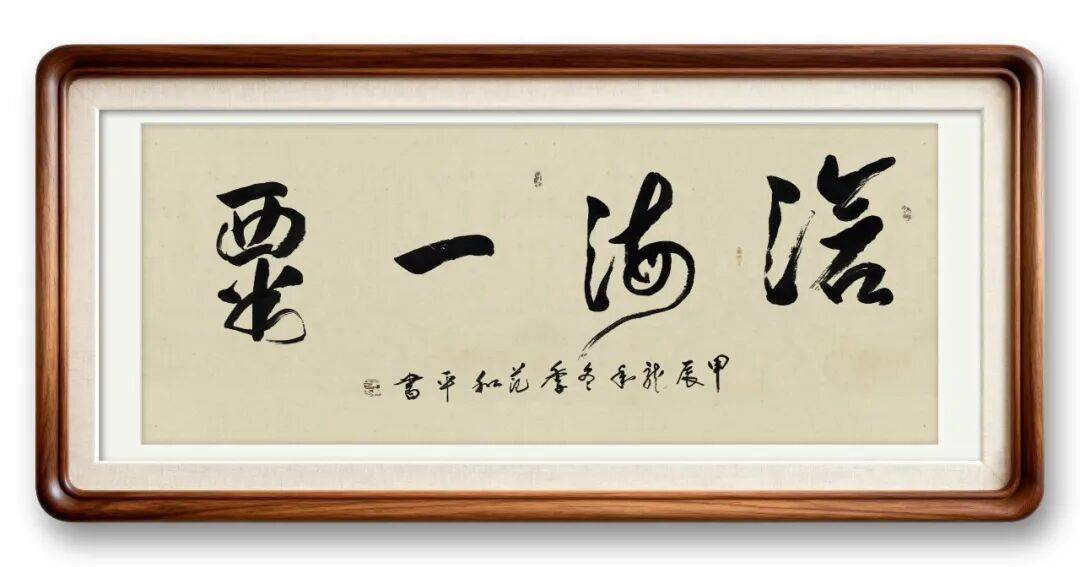 沧海一粟
甲辰龙年冬季范和平书